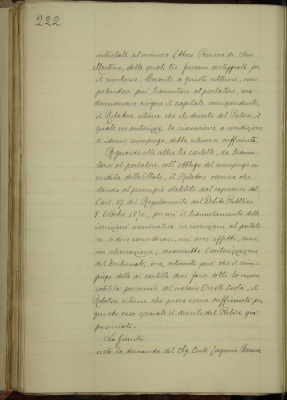 222
intestate al minore Ettore Perrone di San
Martino, delle quali tre furono sorteggiate per
il rimborso. Quanto a queste ultime, non
potendosi più tramutare al portatore, ma
dovendosene esigere il capitale corrispondente,
il Relatore ritiene che il decreto del Pretore, il
quale ne autorizza la riscossione a condizione
di idoneo rimpiego, debba ritenersi sufficiente.
Riguardo alle altre tre cartelle da tramu-
tarsi al portatore coll'obbligo del rimpiego in
rendita dello Stato, il Relatore osserva che
stando al principio stabilito dal capoverso del
l'art. 57 del Regolamento sul Debito Pubblico
8 Ottobre 1870, per cui il tramutamento delle
iscrizioni nominative in iscrizioni al portato
re si deve considerare, nei suoi effetti, come
un'alienazione, occorrebbe l'autorizzazione
del Tribunale, ma, ritenuto però che il rim-
piego delle di cartelle deve farsi sotto la respon
sabilità personale del notaio Oreste Costa, il
Relatore ritiene che possa essere sufficiente per
questo caso speciale il decreto del Pretore già
presentato.
La Giunta
vista la domanda del Sig. Conte